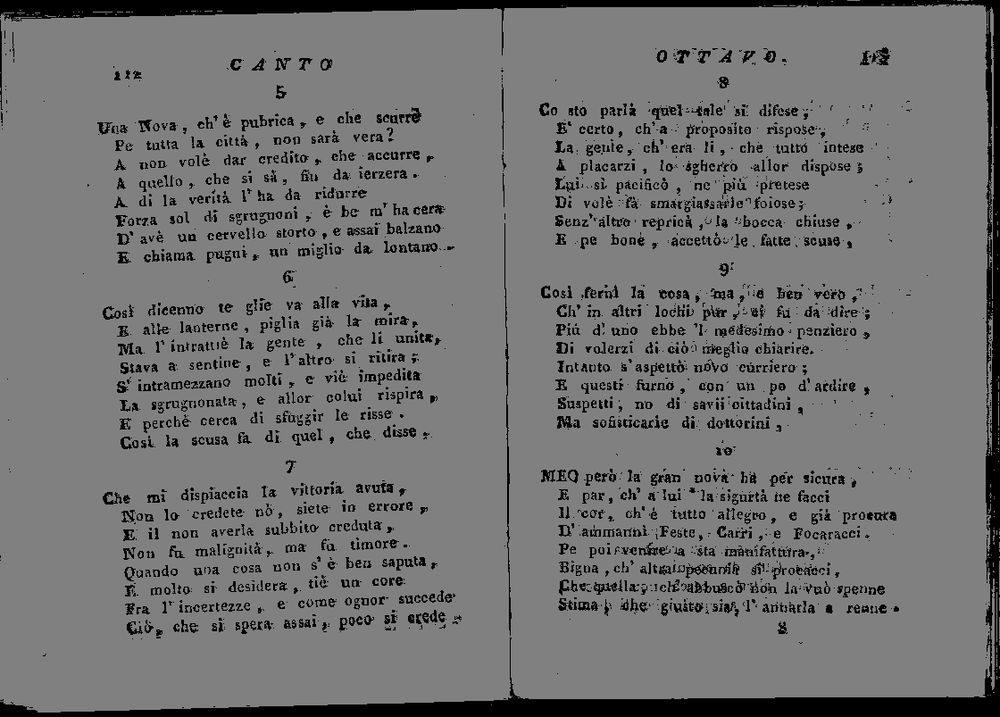 112
CANTO
5
Una Nova, ch' è pubrica, e che scurre
Pe tutta la città, non sarà vera?
A non volè dar credito, che accurre,
A quello, che si sà, fin da jerzera.
A dì la verità l' ha da ridurre
Forza sol di sgrugnoni, è be m' ha cera
D' avè un cervello storto, e assai balzano
E chiama pugni, un miglio da lontano.
6
Così dicenno te glie va alla vita,
E alle lanterne, piglia già la mira,
Ma l' intrattiè la gente, che li unita,
Stava a sentine, e l' altro si ritira;
S' intramezzano molti, e viè impedita
La sgrugnonata, e allor colui rispira,
E perchè cerca di sfuggir le risse.
Così la scusa fa di quel, che disse.
7
Che mi dispiaccia la vittoria avuta,
Non lo credete nò, siete in errore,
E il non averla subbito creduta,
Non fu malignità, ma fu timore.
Quando una cosa non s' è ben saputa,
E molto si desidera, tiè un core
Fra l' incertezze, e come ognor succede
Ciò, che si spera assai, poco si crede.
OTTAVO.
8
Co sto parlà quel tale si difese;
E' certo, ch' a proposito rispose,
La gente, ch' era li, che tutto intese
A placarzi, lo sgherro allor dispose;
Lui si pacificò, ne più pretese
Di volè fa smargiassarie foiose;
Senz' altro repricà, la bocca chiuse,
E pe bone, accettò le fatte scuse,
9
Così fernì la cosa, ma, è ben vero,
Ch' in altri lochi pur, ci fu da dire;
Più d' uno ebbe 'l medesimo penziero,
Di volerzi di ciò meglio chiarire.
Intanto s' aspettò novo curriero;
E questi furno, con un po d' ardire,
Suspetti, no di savii cittadini,
Ma sofisticarie di dottorini,
10
MEO però la gran nova ha per sicura,
E par, ch' a lui la sigurtà ne facci
Il cor, ch' è tutto allegro, e già procura
D' ammannì Feste, Carri, e Focaracci.
Pe poi venire a sta manifattura,
Bigna, ch' altra pecunia si procacci,
Che quella, ch' abbuscò non la vuò spenne
Stima, che giusto sia, l' annarla a renne.